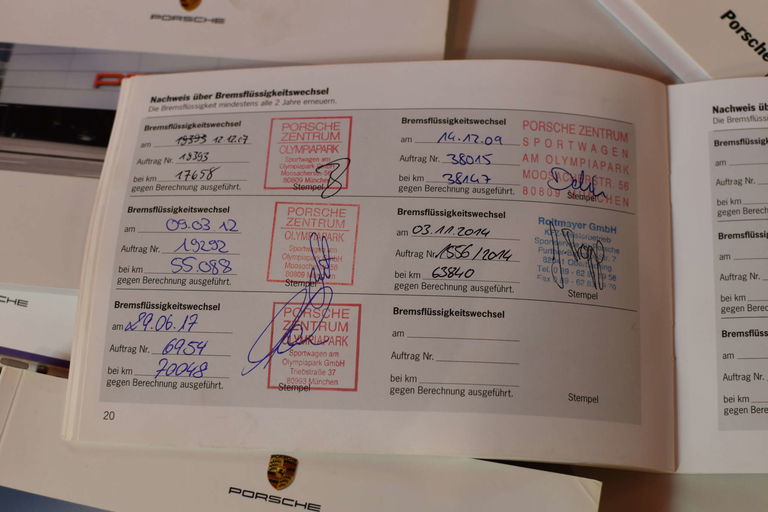 PORSCHE
Porsche
Nachweis über Bremsflüssigkeitswechsel
Die Bremsflüssigkeit mindestens alle 2 Jahre erneuern.
Bremsflüssigkeitswechsel
am 12.12.07
Auftrag Nr. 19393
bei km 17658
gegen Berechnung ausgeführt.
PORSCHE
ZENTRUM
OLYMPIAPARK
Sportwagen am
Olympiapark GmbH
80809 München
Stempel
Bremsflüssigkeitswechsel
am 14.12.09
Auftrag Nr. 38015
bei km 38147
gegen Berechnung ausgeführt.
PORSCHE ZENTRUM
SPORTWAGEN
AM OLYMPIAPARK
MOOSACHERSTR. 56
80809 MÜNCHEN
Stempel
Bremsflüssigkeitswechsel
am 09.03.12
Auftrag Nr. 19292
bei km 55.088
gegen Berechnung ausgeführt.
PORSCHE
ZENTRUM
OLYMPIAPARK
Sportwagen am
Olympiapark
80809
Stempel
Bremsflüssigkeitswechsel
am 03.11.2014
Auftrag Nr. 1556/2014
bei km 63840
gegen Berechnung ausgeführt.
Roitmayer GmbH
Stempel
Bremsflüssigkeitswechsel
am 29.06.17
Auftrag Nr. 6954
bei km 70048
gegen Berechnung ausgeführt.
PORSCHE
ZENTRUM
OLYMPIAPARK
Sportwagen am
Olympiapark GmbH
Triebstraße 37
80993 München
Stempel
Bremsflüssigkeitswechsel
am
Auftrag Nr.
bei km
gegen Berechnung ausgeführt.
Stempel
20
Nachweis üb
Die Bremsflüss
Bremsflüssigk
am
Auftrag Nr.
bei km
gegen Berec
Bremsflüssig
am
Auftrag Nr.
bei km
gegen Bere
Bremsflüss
am
Auftrag Nr.
bei km
gegen Bere
PORSCHE